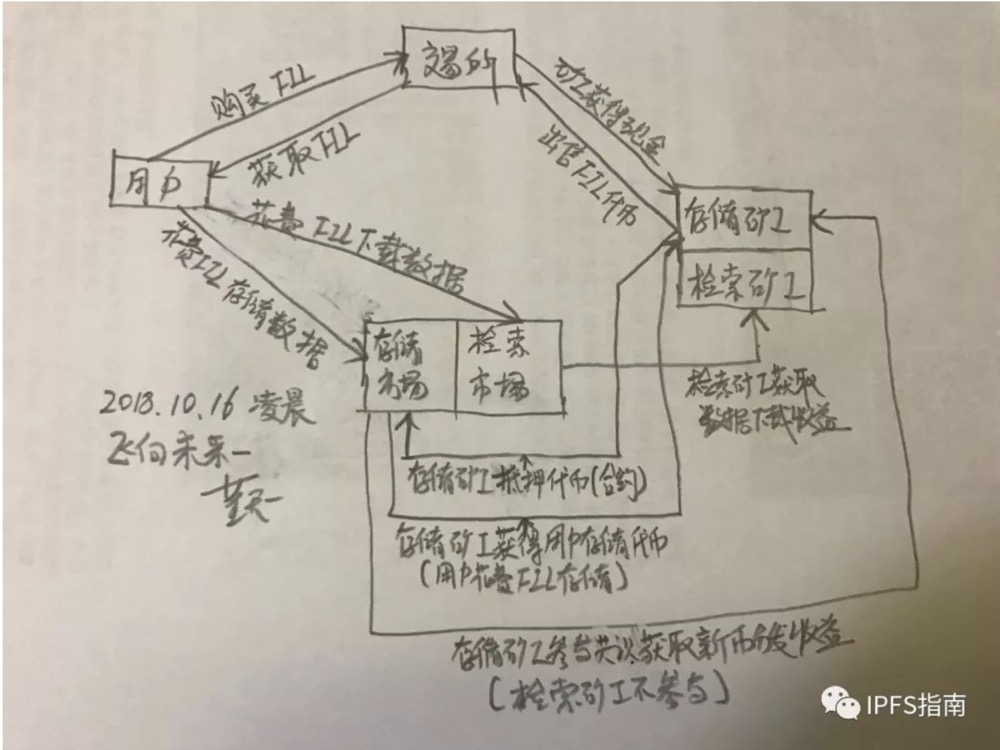 交易所
购买 FIL
获取 FIL
矿工获得现金
出售FIL代币
用户
花费 FIL下载数据
花费FIL存储数据
存储矿工
检索矿工
存储
市场
检索
市场
检索矿工获取
数据下载收益
2018.10.16 凌晨
飞向未来一
存储矿工抵押代币(合约)
存储矿工获得用户存储代币
(用户花费FIL存储)
存储矿工参与共识获取新币分发收益
(检索矿工不参与)
IPFS指南